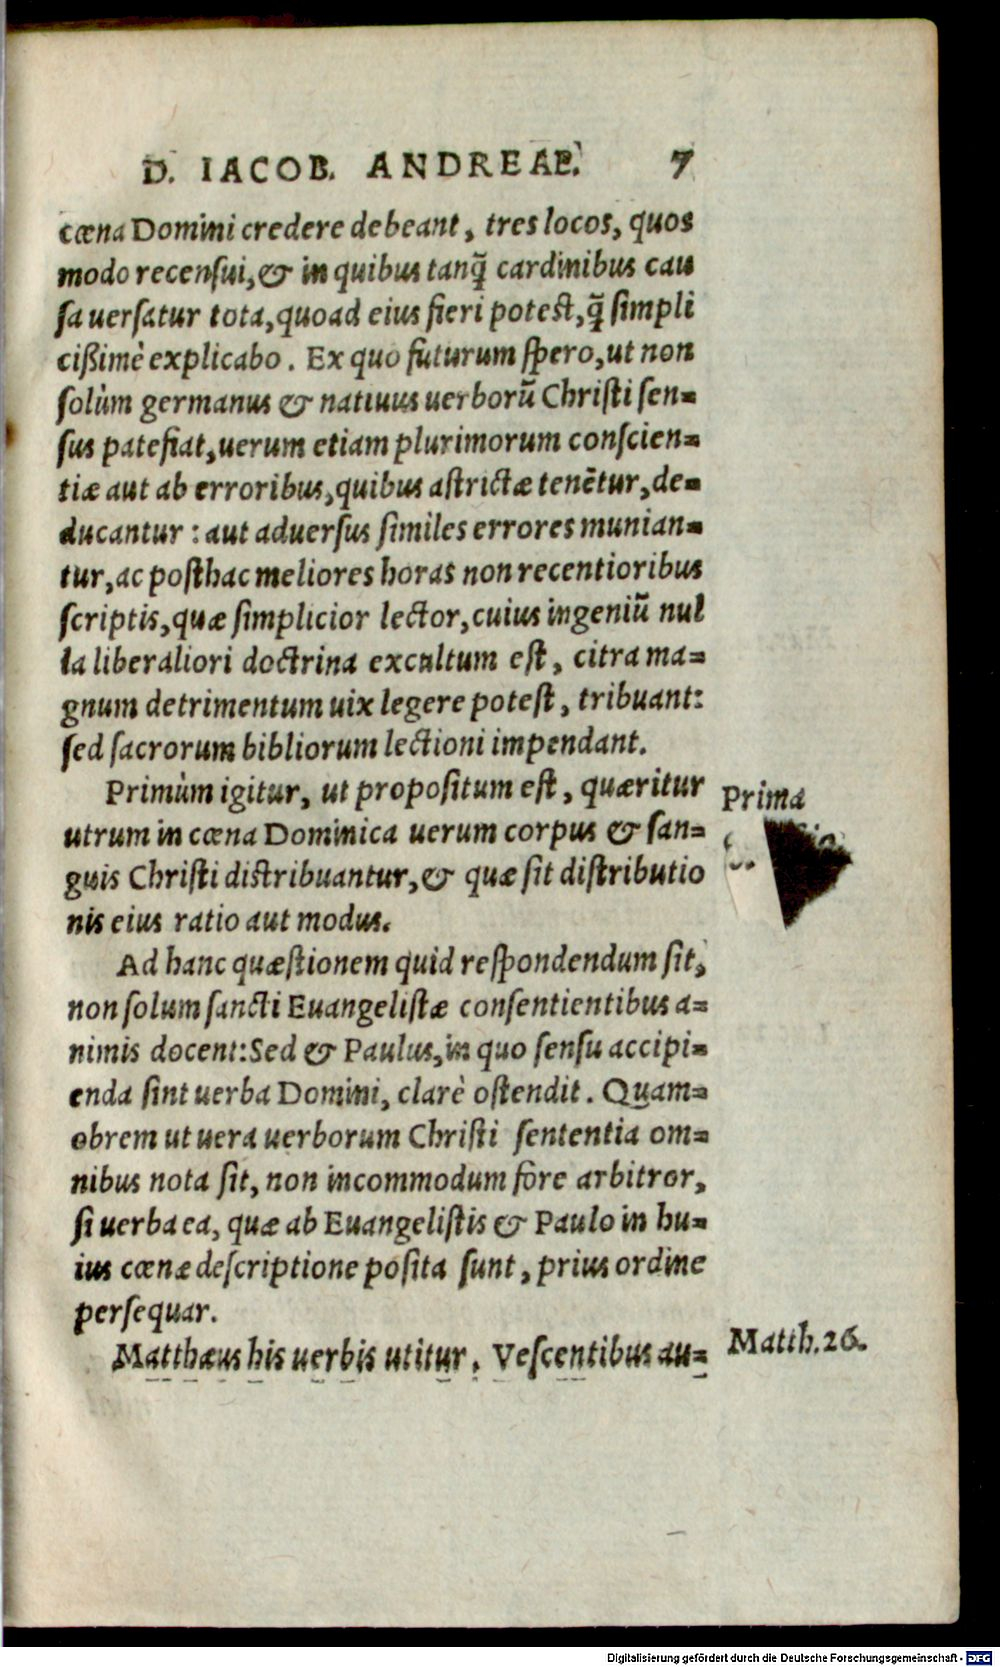 D. IACOB. ANDREAE. 7
cœna Domini credere debeant, tres locos, quos
modo recensui, & in quibus tanq̃ cardinibus cau
sa uersatur tota, quoad eius fieri potest, q̃ simpli
cißimè explicabo. Ex quo futurum spero, ut non
solùm germanus & natiuus uerborũ Christi sen-
sus patefiat, uerum etiam plurimorum conscien-
tiæ aut ab erroribus, quibus astrictæ tenẽtur, de-
ducantur: aut aduersus similes errores munian-
tur, ac posthac meliores horas non recentioribus
scriptis, quæ simplicior lector, cuius ingeniũ nul
la liberaliori doctrina excultum est, citra ma-
gnum detrimentum uix legere potest, tribuant:
sed sacrorum bibliorum lectioni impendant.
Primùm igitur, ut propositum est, quæritur
Prima
utrum in cœna Dominica uerum corpus & san-
guis Christi distribuantur, & quæ sit distributio
nis eius ratio aut modus.
Ad hanc quæstionem quid respondendum sit,
non solum sancti Euangelistæ consentientibus a-
nimis docent: Sed & Paulus, in quo sensu accipi-
enda sint uerba Domini, clarè ostendit. Quam-
obrem ut uera uerborum Christi sententia om-
nibus nota sit, non incommodum fore arbitror,
si uerba ea, quæ ab Euangelistis & Paulo in hu-
ius cœnæ descriptione posita sunt, prius ordine
persequar.
Matthæus his uerbis utitur. Vescentibus au-
Matth. 26.
Digitalisierung gefördert durch die Deutsche Forschungsgemeinschaft - DFG